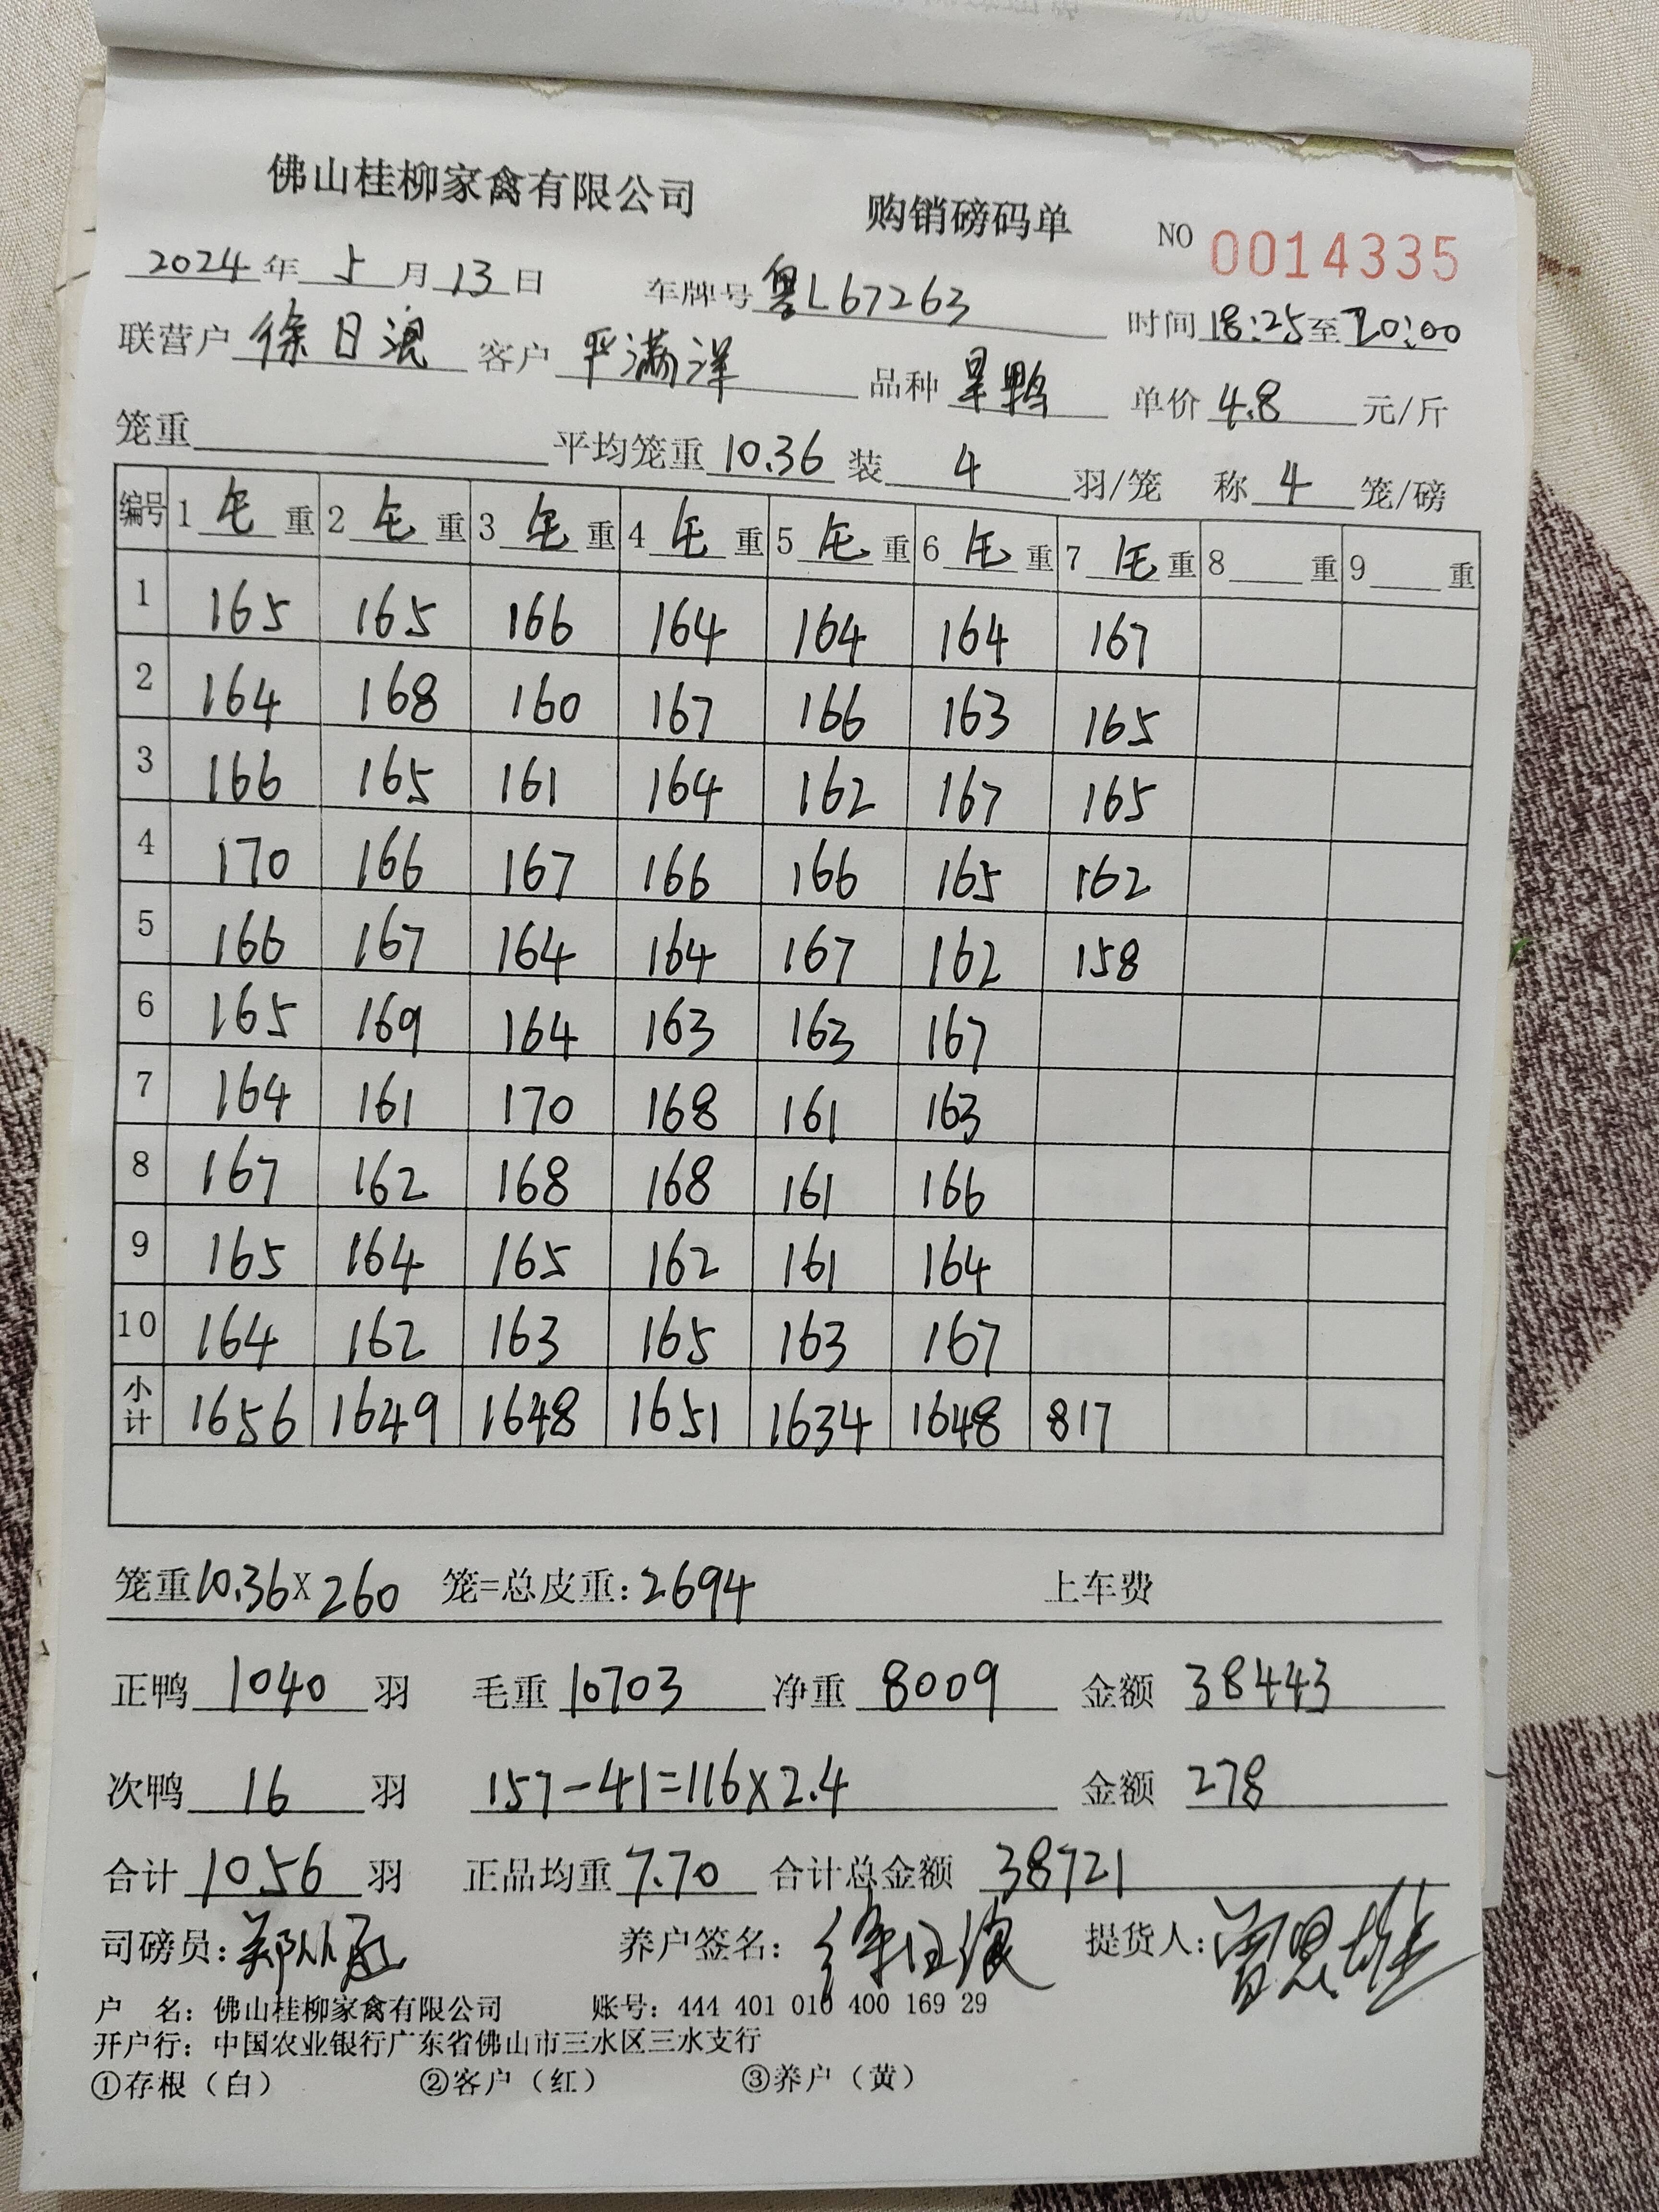 佛山桂柳家禽有限公司 购销磅码单 NO 0014335
2024年5月13日 车牌号 粤L67263 时间 18:25至20:00
联营户 徐日浪 客户 严满洋 品种 旱鸭 单价 4.8 元/斤
笼重 平均笼重 10.36 装 4 羽/笼 称 4 笼/磅
编号 1 毛 重 2 毛 重 3 毛 重 4 毛 重 5 毛 重 6 毛 重 7 毛 重 8 重 9 重
1 165 165 166 164 164 164 167
2 164 168 160 167 166 163 165
3 166 165 161 164 162 167 165
4 170 166 167 166 166 165 162
5 166 167 164 164 167 162 158
6 165 169 164 163 163 167
7 164 161 170 168 161 163
8 167 162 168 168 161 166
9 165 164 165 162 161 164
10 164 162 163 165 163 167
小计 1656 1649 1648 1651 1634 1648 817
笼重10.36×260 笼=总皮重:2694 上车费
正鸭 1040 羽 毛重 10703 净重 8009 金额 38443
次鸭 16 羽 157-41=116×2.4 金额 278
合计 1056 羽 正品均重 7.70 合计总金额 38721
司磅员: 养户签名: 徐日浪 提货人:
户 名: 佛山桂柳家禽有限公司 账号: 444 401 010 400 169 29
开户行: 中国农业银行广东省佛山市三水区三水支行
①存根（白） ②客户（红） ③养户（黄）